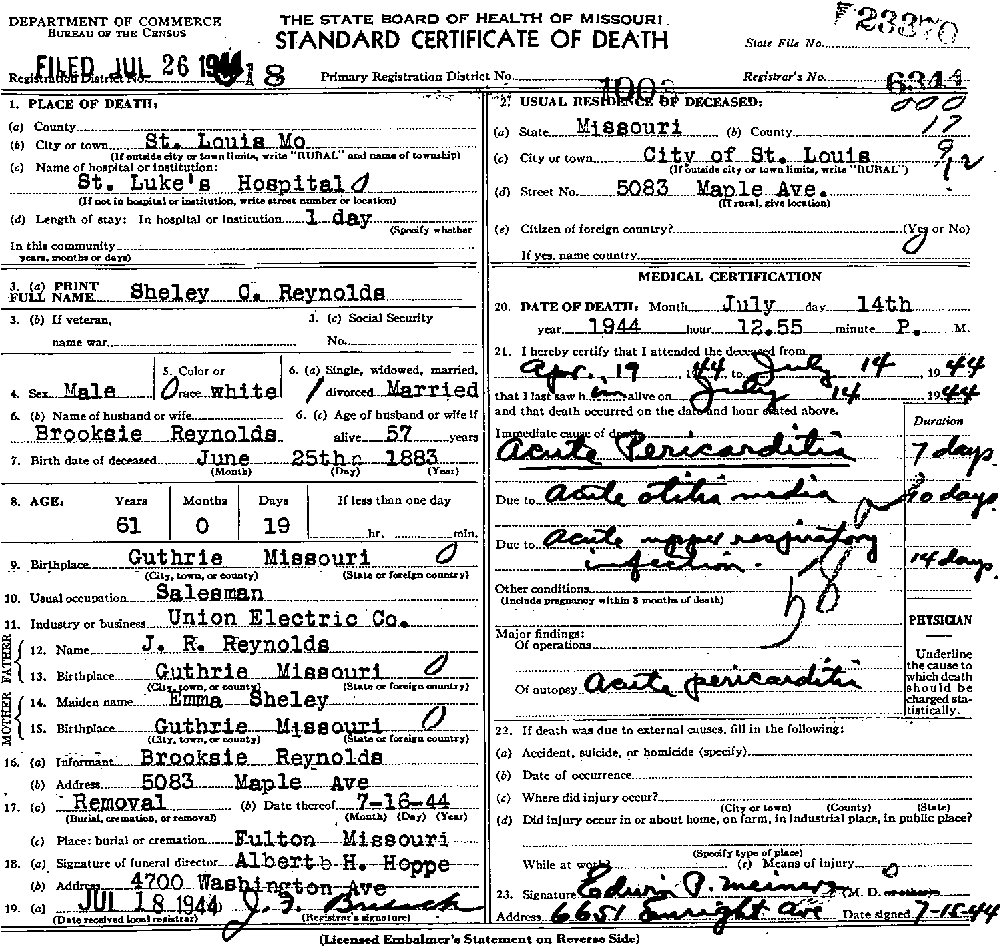 DEPARTMENT OF COMMERCE
BUREAU OF THE CENSUS
THE STATE BOARD OF HEALTH OF MISSOURI
STANDARD CERTIFICATE OF DEATH
State File No. 23370
FILED JUL 26 1944
Registration District No. 318
Primary Registration District No. 1003
Registrar's No. 6344
1. PLACE OF DEATH:
(a) County
(b) City or town St. Louis Mo
(If outside city or town limits, write "RURAL" and name of township)
(c) Name of hospital or institution:
St. Luke's Hospital 0
(If not in hospital or institution, write street number or location)
(d) Length of stay: In hospital or institution 1 day
(Specify whether
In this community
years, months or days)
2. USUAL RESIDENCE OF DECEASED:
000
(a) State Missouri (b) County 17
(c) City or town City of St. Louis 9/12
(If outside city or town limits, write "RURAL")
(d) Street No. 5083 Maple Ave.
(If rural, give location)
(e) Citizen of foreign country? (Yes or No)
If yes, name country
3. (a) PRINT FULL NAME Sheley C. Reynolds
3. (b) If veteran, name war
3. (c) Social Security No.
4. Sex Male
5. Color or race white
6. (a) Single, widowed, married, divorced Married
6. (b) Name of husband or wife
Brooksie Reynolds
6. (c) Age of husband or wife if alive 57 years
7. Birth date of deceased June 25th 1883
(Month) (Day) (Year)
8. AGE: Years Months Days If less than one day
61 0 19 hr. min.
9. Birthplace Guthrie Missouri 0
(City, town, or county) (State or foreign country)
10. Usual occupation Salesman
11. Industry or business Union Electric Co.
FATHER
12. Name J. R. Reynolds
13. Birthplace Guthrie Missouri 0
(City, town, or county) (State or foreign country)
MOTHER
14. Maiden name Emma Sheley
15. Birthplace Guthrie Missouri 0
(City, town, or county) (State or foreign country)
16. (a) Informant Brooksie Reynolds
(b) Address 5083 Maple Ave
17. (c) Removal (b) Date thereof 7-16-44
(Burial, cremation, or removal) (Month) (Day) (Year)
(c) Place: burial or cremation Fulton Missouri
18. (a) Signature of funeral director Albert H. Hoppe
(b) Address 4700 Washington Ave
19. (a) JUL 18 1944
(Date received local registrar) (Registrar's signature)
MEDICAL CERTIFICATION
20. DATE OF DEATH: Month July day 14th
year 1944 hour 12.55 minute P. M.
21. I hereby certify that I attended the deceased from
Apr. 19 1944 to July 14 1944
that I last saw him alive on July 14 1944
and that death occurred on the date and hour stated above.
Duration
Immediate cause of death
Acute Pericarditis 7 days
Due to Acute otitis media 10 days.
Due to Acute upper respiratory
infection. 14 days.
Other conditions
(Include pregnancy within 3 months of death)
Major findings:
Of operations
Of autopsy Acute pericarditis
PHYSICIAN
Underline
the cause to
which death
should be
charged sta-
tistically.
22. If death was due to external causes, fill in the following:
(a) Accident, suicide, or homicide (specify)
(b) Date of occurrence
(c) Where did injury occur?
(City or town) (County) (State)
(d) Did injury occur in or about home, on farm, in industrial place, in public place?
(Specify type of place)
While at work? (e) Means of injury 0
23. Signature Edwin P. Meiners M. D.
Address 6651 Enright Ave Date signed 7-15-44
(Licensed Embalmer's Statement on Reverse Side)